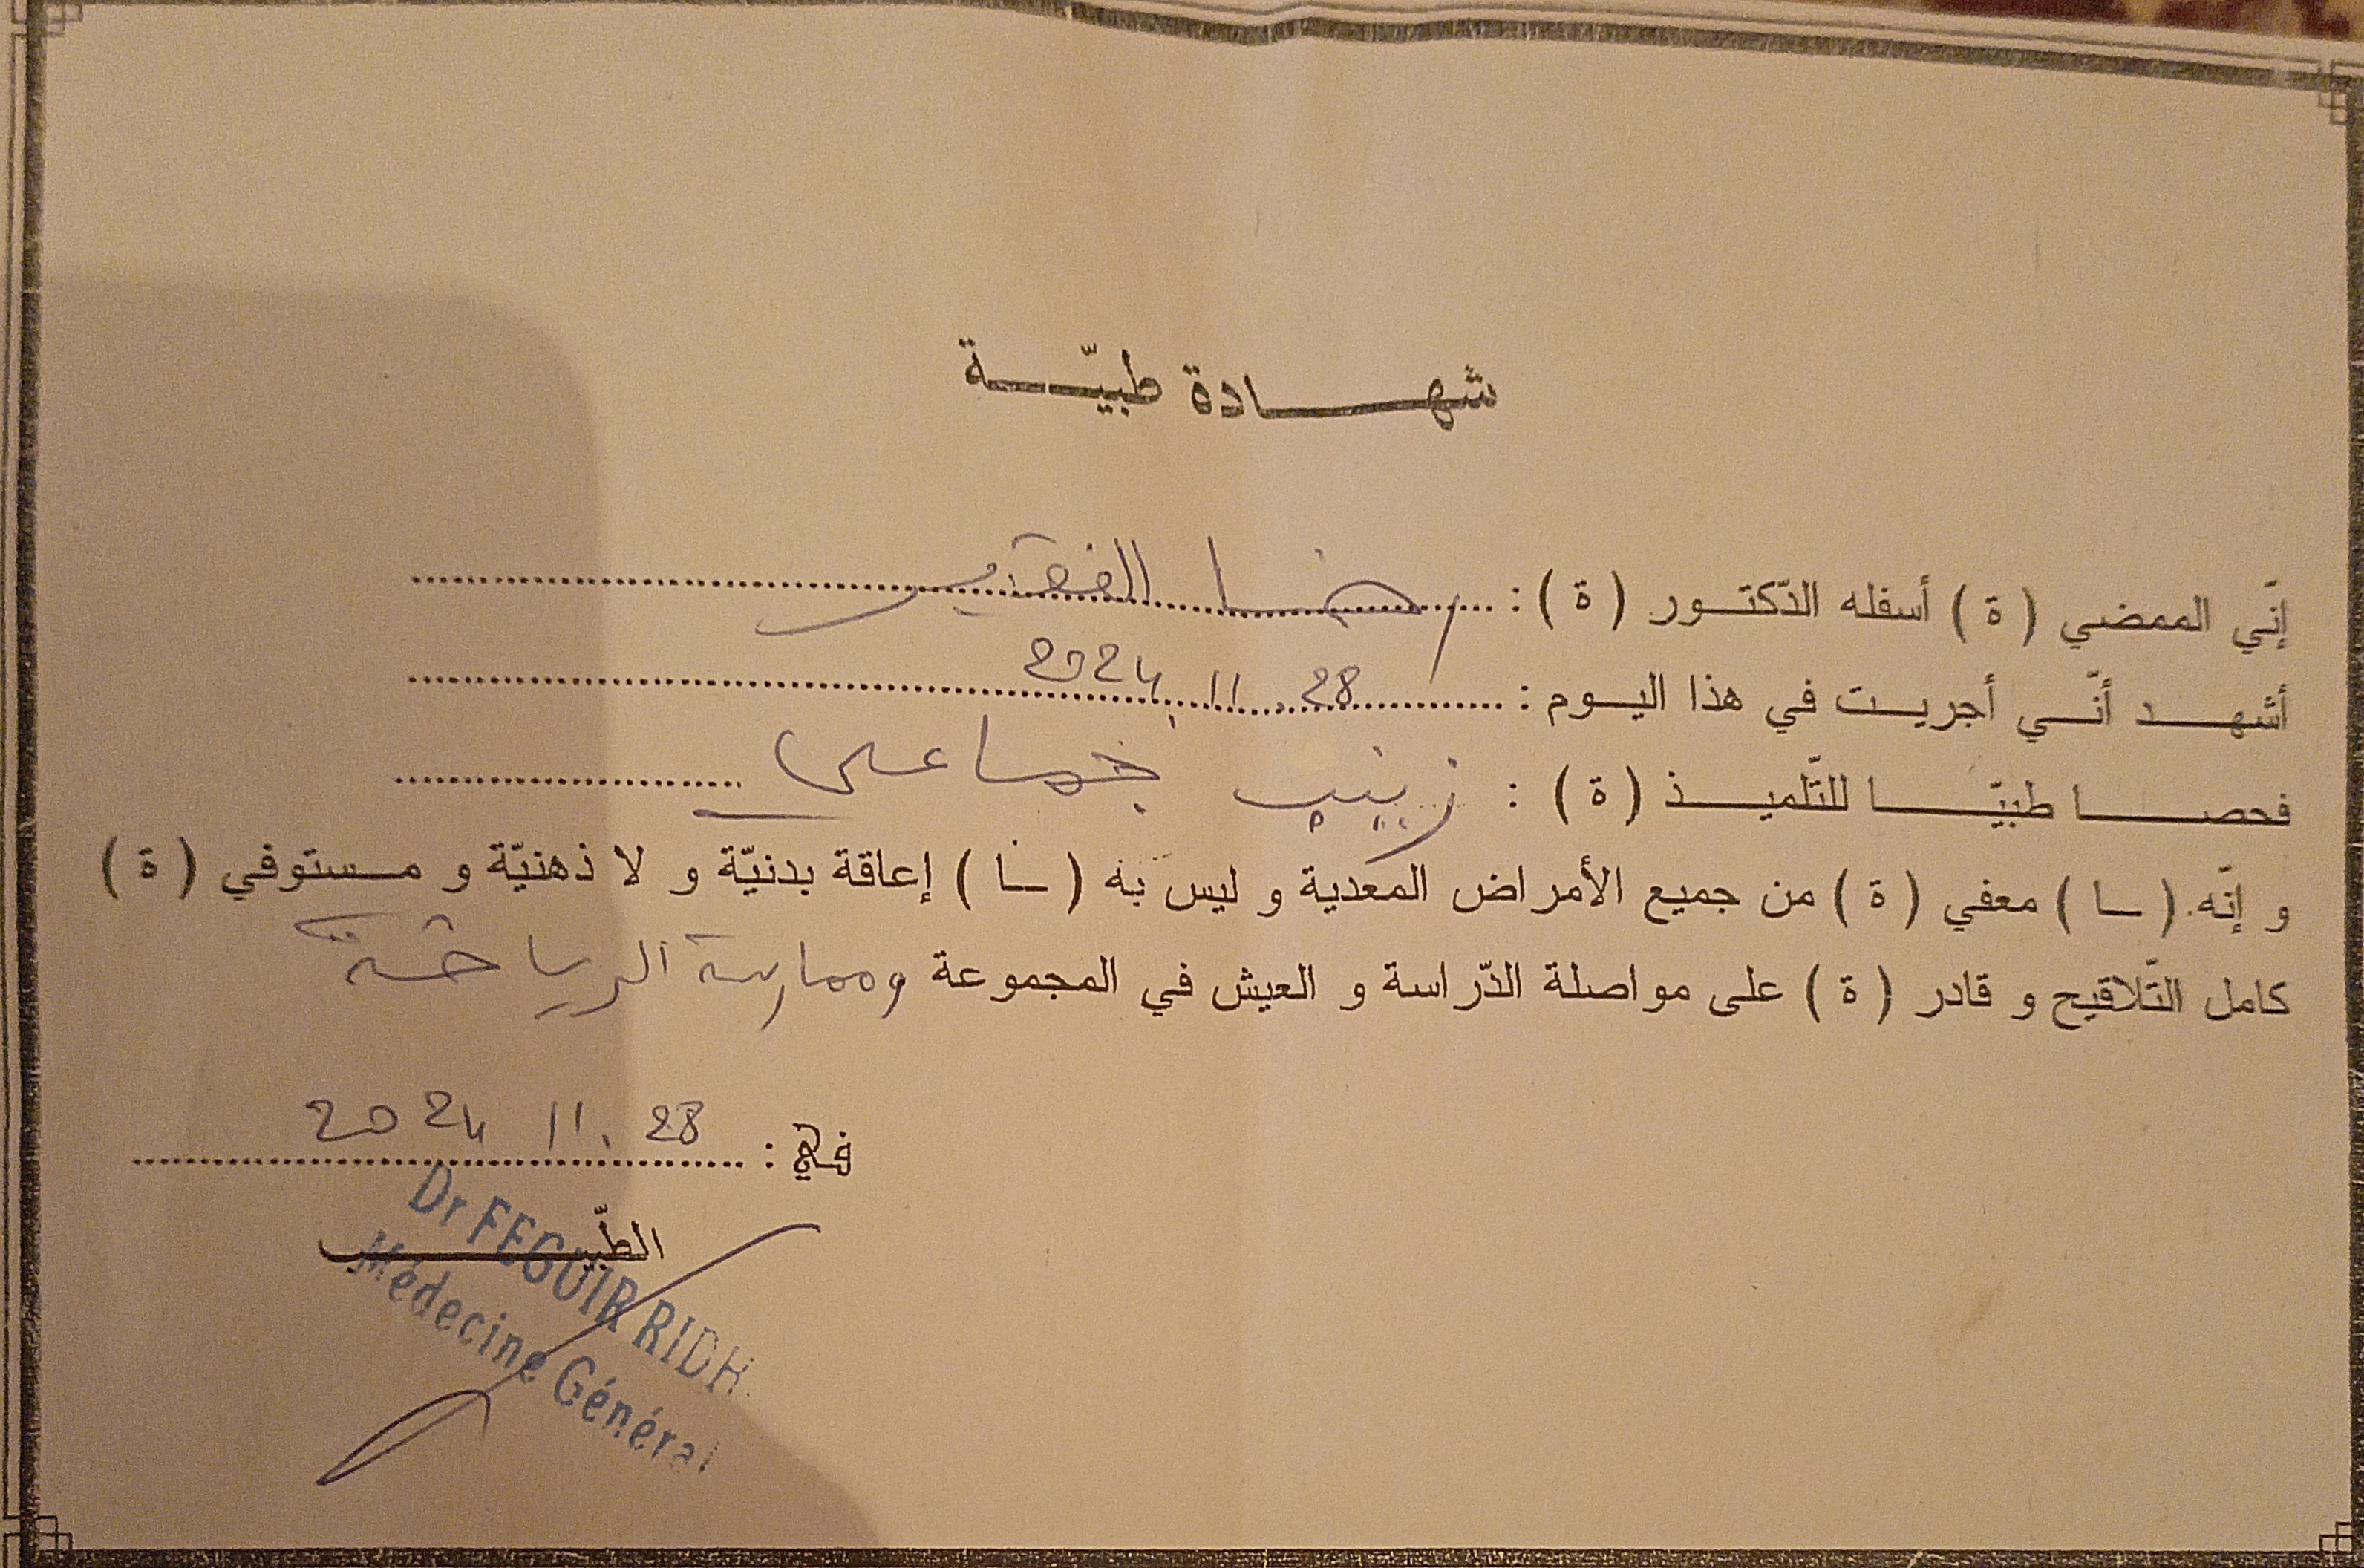 شهادة طبيّة
إنّي الممضي ( ة ) أسفله الدّكتور ( ة ) : رضا الفقير
أشهد أنّي أجريت في هذا اليوم : 28 . 11 . 2024
فحصا طبيّا للتّلميذ ( ة ) : زينب جماعلي
و إنّه ( ـا ) معفي ( ة ) من جميع الأمراض المعدية و ليس به ( ـا ) إعاقة بدنيّة و لا ذهنيّة و مستوفي ( ة )
كامل التّلاقيح و قادر ( ة ) على مواصلة الدّراسة و العيش في المجموعة وممارسة الرياضة
في : 28 . 11 2024
الطّبيب
Dr FEGUIR RIDH
Médecine Général